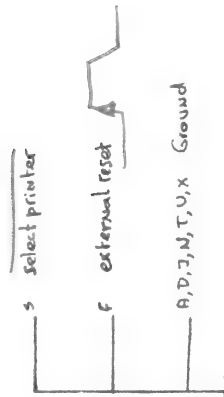 S select printer
F external reset
A, D, J, N, T, U, X Ground